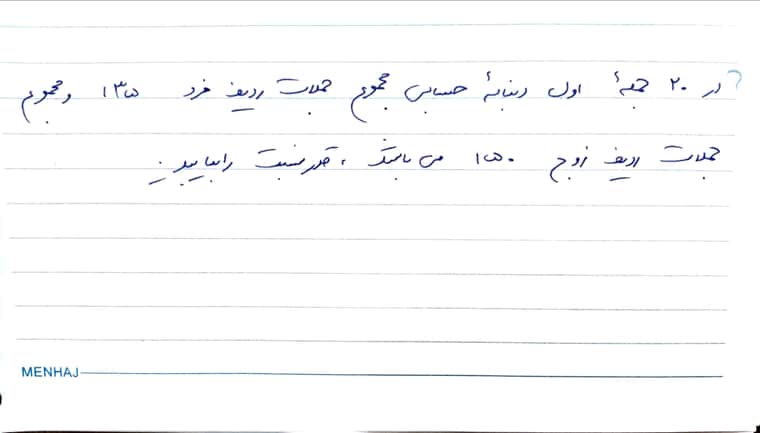 در ۲۰ جملهٔ اول دنبالهٔ حسابی مجموع جملات ردیف فرد ۱۳۵ و مجموع
جملات ردیف زوج ۱۵۰ می باشد ، قدر نسبت را بیابید .
MENHAJ